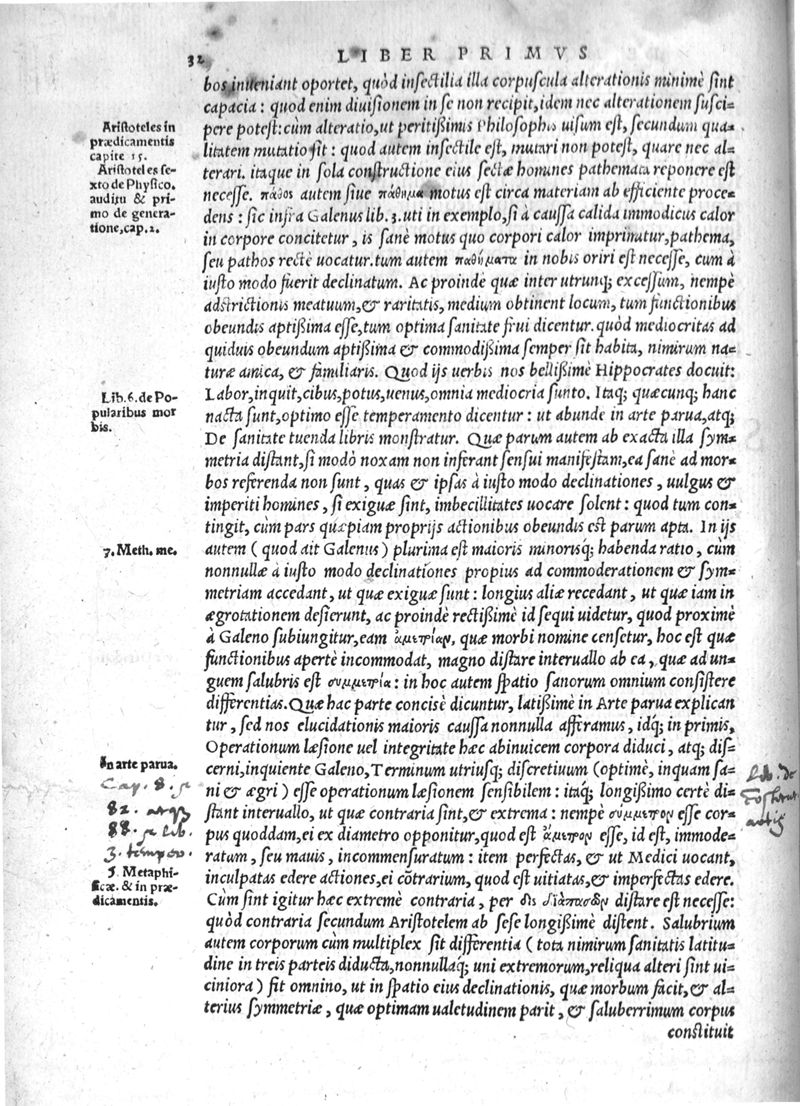 32
LIBER PRIMVS
bos inueniant oportet, quòd insectilia illa corpuscula alterationis minimè sint
capacia: quod enim diuisionem in se non recipit, idem nec alterationem susci-
pere potest: cùm alteratio, ut peritißimis Philosophis uisum est, secundum qua-
litatem mutatio sit: quod autem insectile est, mutari non potest, quare nec al-
terari. itaque in sola constructione eius sectæ homines pathemata reponere est
necesse. πάθος autem siue πάθημα motus est circa materiam ab efficiente proce-
dens: sic infra Galenus lib. 3. uti in exemplo, si à caussa calida immodicus calor
in corpore concitetur, is sanè motus quo corpori calor imprimatur, pathema,
seu pathos rectè uocatur. tum autem παθήματα in nobis oriri est necesse, cum à
iusto modo fuerit declinatum. Ac proinde quæ inter utrunq; excessum, nempè
adstrictionis meatuum, & raritatis, medium obtinent locum, tum functionibus
obeundis aptißima esse, tum optima sanitate frui dicentur. quòd mediocritas ad
quiduis obeundum aptißima & commodißima semper sit habita, nimirum na-
turæ amica, & familiaris. Quod ijs uerbis nos bellißimè Hippocrates docuit:
Labor, inquit, cibus, potus, uenus, omnia mediocria sunto. Itaq; quæcunq; hanc
nacta sunt, optimo esse temperamento dicentur: ut abunde in arte parua, atq;
De sanitate tuenda libris monstratur. Quæ parum autem ab exacta illa sym-
metria distant, si modò noxam non inferant sensui manifestam, ea sanè ad mor-
bos referenda non sunt, quas & ipsas à iusto modo declinationes, uulgus &
imperiti homines, si exiguæ sint, imbecillitates uocare solent: quod tum con-
tingit, cùm pars quæpiam proprijs actionibus obeundis est parum apta. In ijs
autem (quod ait Galenus) plurima est maioris minorisq́; habenda ratio, cùm
nonnullæ à iusto modo declinationes propius ad commoderationem & sym-
metriam accedant, ut quæ exiguæ sunt: longius aliæ recedant, ut quæ iam in
ægrotationem desierunt, ac proindè rectißimè id sequi uidetur, quod proximè
à Galeno subiungitur, eam ἀμετρίαν, quæ morbi nomine censetur, hoc est quæ
functionibus apertè incommodat, magno distare interuallo ab ea, quæ ad un-
guem salubris est συμμετρία: in hoc autem spatio sanorum omnium consistere
differentias. Quæ hac parte concisè dicuntur, latißimè in Arte parua explican
tur, sed nos elucidationis maioris caussa nonnulla afferamus, idq́; in primis,
Operationum læsione uel integritate hæc abinuicem corpora diduci, atq; dis-
cerni, inquiente Galeno, Terminum utriusq; discretiuum (optimè, inquam sa-
ni & ægri) esse operationum læsionem sensibilem: itaq; longißimo certè di-
stant interuallo, ut quæ contraria sint, & extrema: nempè σύμμετρον esse cor-
pus quoddam, ei ex diametro opponitur, quod est ἄμετρον esse, id est, immode-
ratum, seu mauis, incommensuratum: item perfectas, & ut Medici uocant,
inculpatas edere actiones, ei cõtrarium, quod est uitiatas, & imperfectas edere.
Cùm sint igitur hæc extremè contraria, per δὶς διαπασῶν distare est necesse:
quòd contraria secundum Aristotelem ab sese longißimè distent. Salubrium
autem corporum cùm multiplex sit differentia (tota nimirum sanitatis latitu-
dine in treis parteis diducta, nonnullaq́; uni extremorum, reliqua alteri sint ui-
ciniora) fit omnino, ut in spatio eius declinationis, quæ morbum facit, & al-
terius symmetriæ, quæ optimam ualetudinem parit, & saluberrimum corpus
constituit
Aristoteles in
prædicamentis
capite 15.
Aristoteles se-
xto de Physico.
auditu & pri-
mo de genera-
tione, cap. 2.
Lib. 6. de Po-
pularibus mor
bis.
7. Meth. me.
In arte parua.
Cap. 8. &
82. atq;
88. & lib.
3. temper.
5. Metaphi-
sicæ. & in præ-
dicamentis.
Lib. de